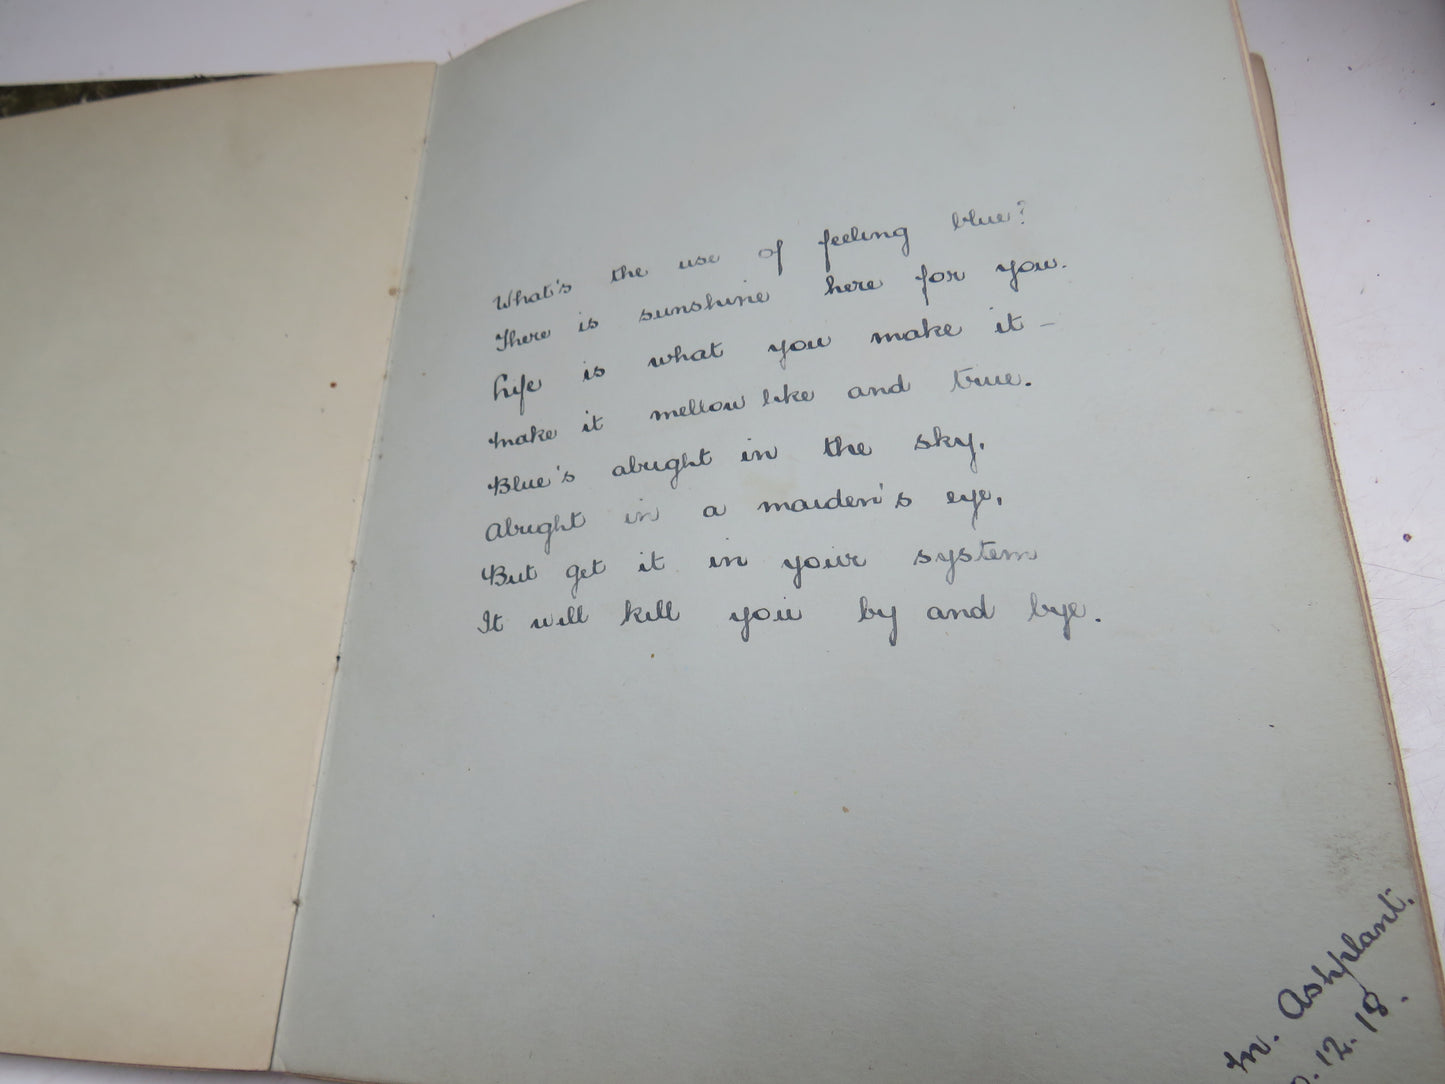 What's the use of feeling blue?
There is sunshine here for you.
Life is what you make it –
Make it mellow like and true.
Blue's alright in the sky,
Alright in a maiden's eye,
But get it in your system
It will kill you by and bye.
M. Ashplant.
.12.18.